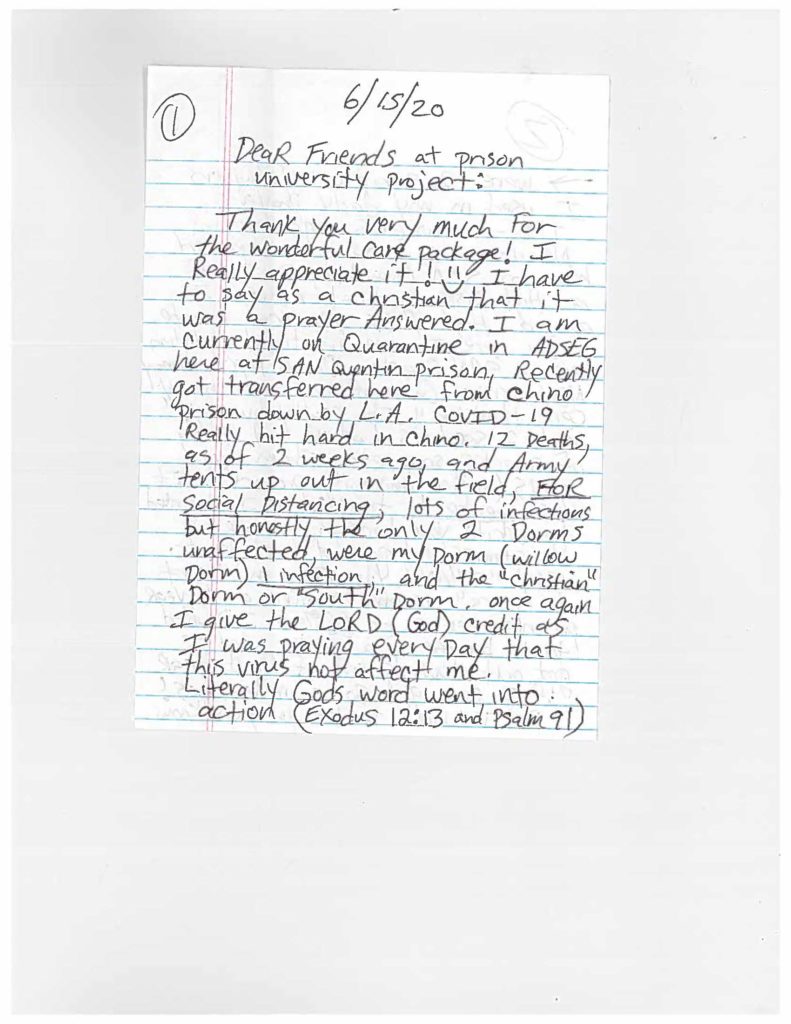 1
6/15/20
DeaR Friends at prison
university project:
Thank you very much For
the wonderful Care package! I
Really appreciate it! I have
to say as a christian that it
was a prayer Answered. I am
currently on Quarantine in ADSEG
here at SAN Quentin prison, Recently
got transferred here from chino
prison down by L.A. COVID-19
Really hit hard in chino. 12 Deaths,
as of 2 weeks ago, and Army
tents up out in the field, FOR
Social Distancing, lots of infections
but honestly the only 2 Dorms
unaffected, were my Dorm (willow
Dorm) 1 infection, and the "christian"
Dorm or "South" Dorm. once again
I give the LORD (God) credit as
I was praying every Day that
this virus not affect me.
Literally Gods word went into
action (Exodus 12:13 and Psalm 91)